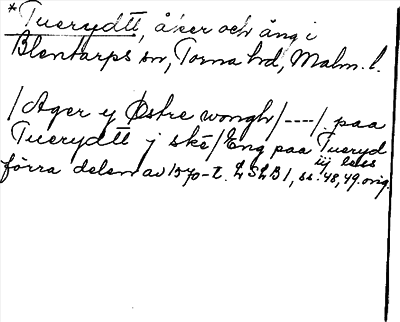 *Tuerydtt, åker och äng i
Blentarps sn, Torna hd, Malm. l.
/Ager y Østre wongh/----/ paa
Tuerydtt j ske/Eng paa Tueryd
iij less
förra delen av 1570-t. LSLB 1, ss. 48, 49. orig.